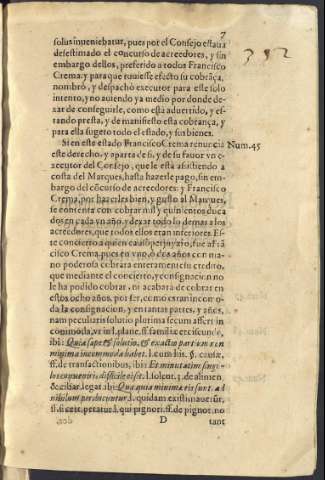 7
352
solus inueniebatur, pues por el Consejo estaua
desestimado el concurso de acreedores, y sin
embargo dellos, preferido a todos Francisco
Crema: y para que tuuiesse efecto su cobrãça,
nombrò, y despachò executor para este solo
intento, no auiendo ya medio por donde de-
xar de conseguirle, como està aduertido, y es-
tando presta, y de manifiesto esta cobrança, y
para ella sugeto todo el estado, y sus bienes.
Si en este estado Francisco Crema renuncia
Num.45
este derecho, y aparta de si, y de su fauor vn e-
xecutor del Consejo, que le està assistiendo a
costa del Marques, hasta hazerle pago, sin em-
bargo del cõcurso de acreedores: y Francisco
Crema, por hazerles bien, y gusto al Marques,
se contenta con cobrar mil y quinientos duca
dos en cada vn año, y dexar todo lo demas a los
acreedores, que todos ellos eran inferiores. Es-
te concierto a quien causò perjuyzio, fue a Frã
cisco Crema, pues en vno, ò dos años con ma-
no poderosa cobrara enteramente su credito,
que mediante el concierto, y consignacion no
le ha podido cobrar, ni acabarà de cobrar en
estos ocho años, por ser, como es tan incomo-
da la consignacion, y en tantas partes, y años,
nam pecularis solutio plurima secum affert in
commoda, vt in l. plane. ff. familiæ erciscundæ,
ibi: Quia sæpe & solutio, & exactio partium non
minima incommoda habet. l. cum his. §.
ff. de transactionibus, ibi: Et minutatim singu-
los conueniri difficile esset. l. solent. 3. de alimen.
& cibar. legat. ibi: Qua quia minima eis sunt, ad
nihilum perducuntur. l. quidam existimauerũt.
ff. si cert. petatur. l. qui pignori. ff. de pignor. no
D
tant